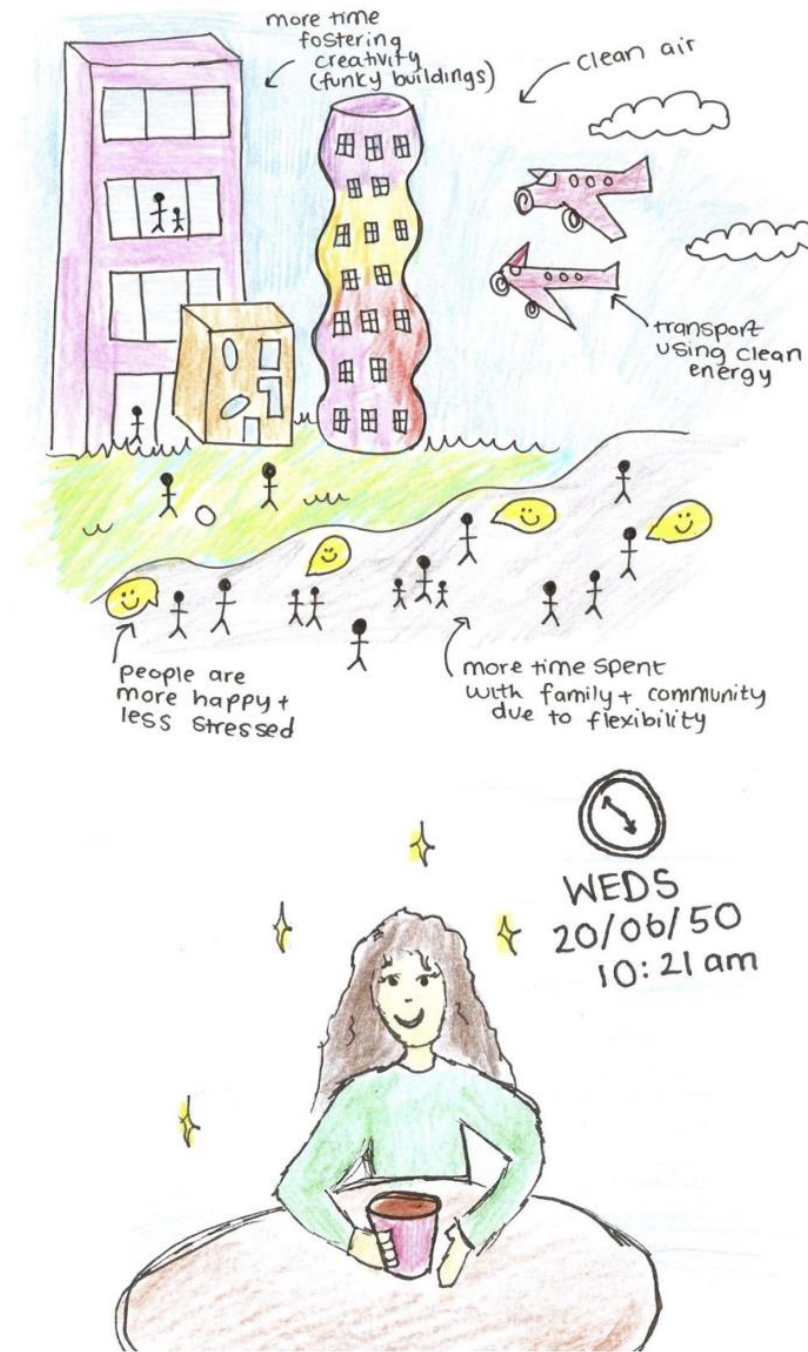 more time
fostering
creativity
(funky buildings)
clean air
transport
using clean
energy
people are
more happy +
less stressed
more time spent
with family + community
due to flexibility
WEDS
20/06/50
10:21 am